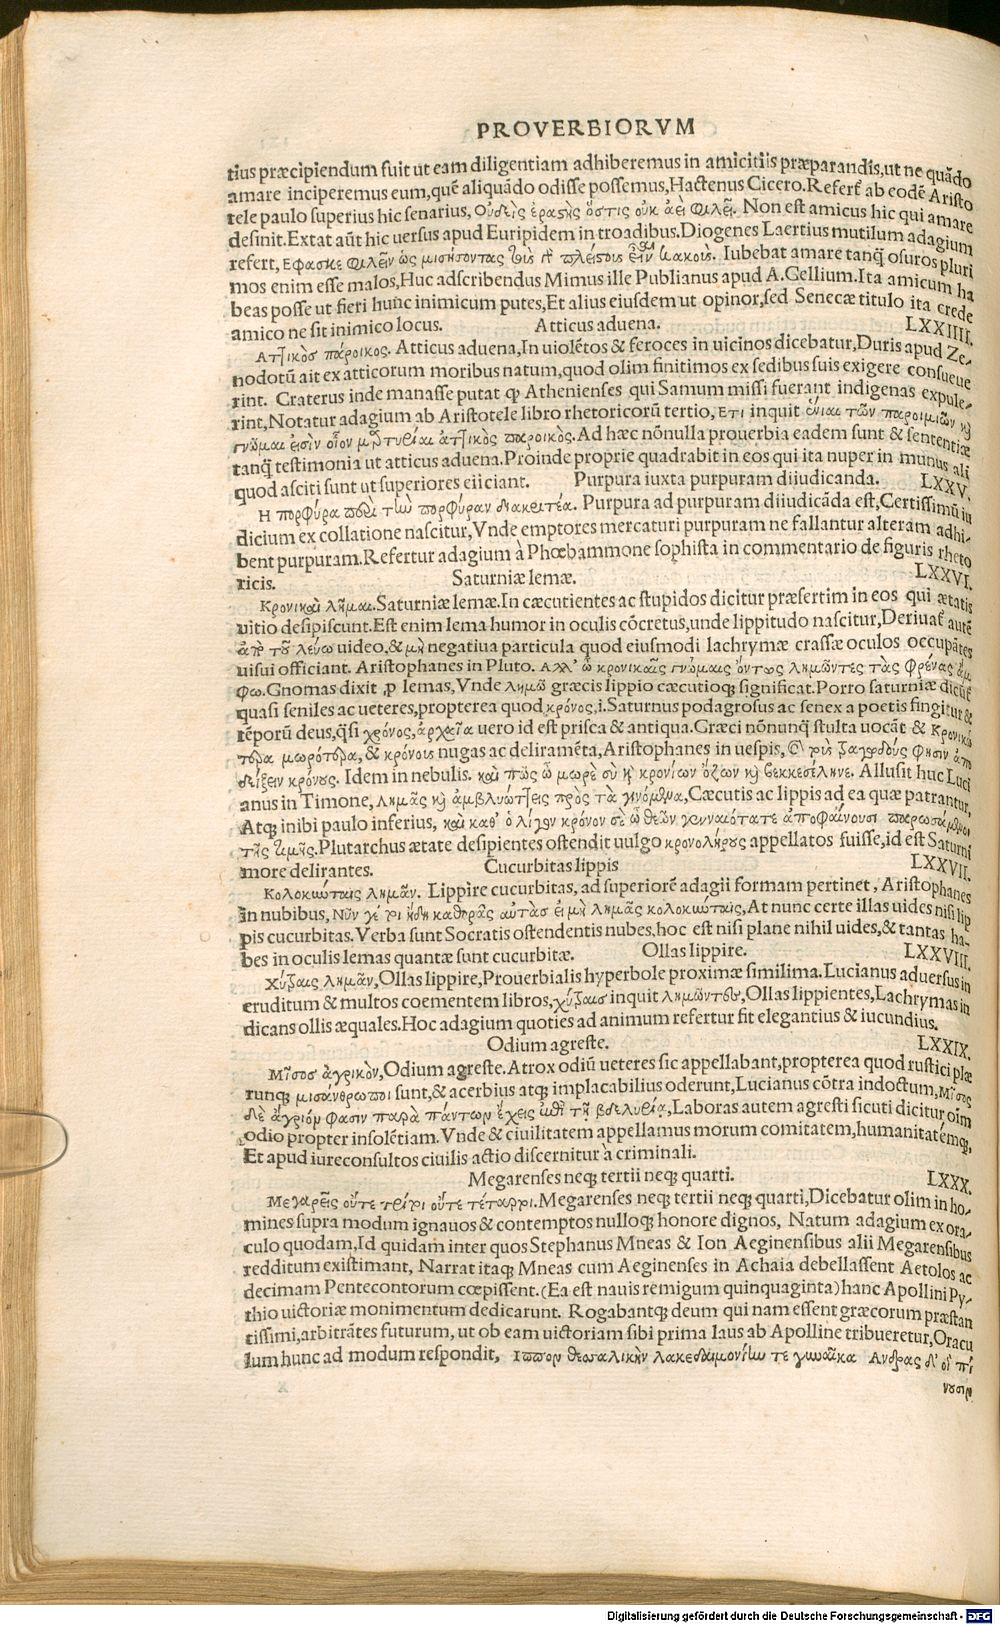 PROVERBIORVM
tius præcipiendum fuit ut eam diligentiam adhiberemus in amicitiis præparandis,ut ne quãdo
amare inciperemus eum,quẽ aliquãdo odisse possemus,Hactenus Cicero.Refert̃ ab eodẽ Aristo
tele paulo superius hic senarius, Οὐδεὶς ἐραϛὴς ὅστις οὐκ ἀεὶ φιλεῖ. Non est amicus hic qui amare
desinit.Extat aũt hic uersus apud Euripidem in troadibus.Diogenes Laertius mutilum adagium
refert, Εφασκε φιλεῖν ὡς μισήσοντας τοὺς γὸ πλείϛους εἶναι κακούς. Iubebat amare tanq̃ osuros pluri
mos enim esse malos,Huc adscribendus Mimus ille Publianus apud A.Gellium.Ita amicum ha
beas posse ut fieri hunc inimicum putes,Et alius eiusdem ut opinor,sed Senecæ titulo ita crede
amico ne sit inimico locus. Atticus aduena. LXXIIII.
Ατ̓ικὸσ πάροικος. Atticus aduena,In uiolẽtos & feroces in uicinos dicebatur,Duris apud Ze-
nodotũ ait ex atticorum moribus natum,quod olim finitimos ex sedibus suis exigere consueue
rint. Craterus inde manasse putat ꝙ Athenienses qui Samum missi fuerant indigenas expule-
rint,Notatur adagium ab Aristotele libro rhetoricorũ tertio, Ετι inquit ἔνιαι τῶν παροιμιῶν κὴ
γνῶμαι εἰσὶν οἷον μαρτυρίαι ἀτ̓ικὸς παροικός. Ad hæc nõnulla prouerbia eadem sunt & sententiæ
tanq̃ testimonia ut atticus aduena.Proinde proprie quadrabit in eos qui ita nuper in munus ali
quod asciti sunt ut superiores eiiciant. Purpura iuxta purpuram diiudicanda. LXXV.
Η πορφύρα παρὰ τὴν πορφύραν διακριτέα. Purpura ad purpuram diiudicãda est,Certissimũ iu
dicium ex collatione nascitur,Vnde emptores mercaturi purpuram ne fallantur alteram adhi-
bent purpuram.Refertur adagium à Phœbammone sophista in commentario de figuris rheto
ricis. Saturniæ lemæ. LXXVI.
Κρονικαὶ λῆμαι.Saturniæ lemæ.In cæcutientes ac stupidos dicitur præsertim in eos qui ætatis
uitio desipiscunt.Est enim lema humor in oculis cõcretus,unde lippitudo nascitur,Deriuat̃ autẽ
ἀπὸ τοῦ λεύω uideo,& μὴ negatiua particula quod eiusmodi lachrymæ crassæ oculos occupãtes
uisui officiant. Aristophanes in Pluto. Αλλ' ὦ κρονικαῖς γνώμαις ὄντως λημῶντες τὰς φρένας ἄμ
φω.Gnomas dixit ꝓ lemas,Vnde λημῶ græcis lippio cæcutioq; significat.Porro saturniæ dicũt̃
quasi seniles ac ueteres,propterea quod κρόνος,i.Saturnus podagrosus ac senex a poetis fingitur &
tẽporũ deus,q̃si χρόνος,ἀρχεῖα uero id est prisca & antiqua.Græci nõnunq̃ stulta uocãt & Κρονικώ
τερα μωρότερα, & κρόνους nugas ac deliramẽta,Aristophanes in uespis,
δείξειν κρόνους. Idem in nebulis. καὶ πῶς ὦ μωρὲ σὺ κὴ κρονίων ὄζων κὴ βεκκεσέληνε. Allusit huc Luci
anus in Timone, λημᾶς κὴ ἀμβλυώτ̓εις πρὸς τὰ γινόμενα,Cæcutis ac lippis ad ea quæ patrantur,
Atq; inibi paulo inferius, καὶ καθ' ὀλίγον κρόνον σὲ ὦ θεῶν γενναιότατε ἀποφαίνουσι παρωσάμενοι
τῆς τιμῆς.Plutarchus ætate desipientes ostendit uulgo κρονολήρους appellatos fuisse,id est Saturni
more delirantes. Cucurbitas lippis LXXVII.
Κολοκύνταις λημᾶν. Lippire cucurbitas, ad superiorẽ adagii formam pertinet, Aristophanes
in nubibus, Νῦν γέ τοι ἤδη καθορᾶς αὐτὰσ εἰ μὴ λημᾶς κολοκύνταις,At nunc certe illas uides nisi lip
pis cucurbitas.Verba sunt Socratis ostendentis nubes,hoc est nisi plane nihil uides,& tantas ha-
bes in oculis lemas quantæ sunt cucurbitæ. Ollas lippire. LXXVIII.
Χύτραις λημᾶν,Ollas lippire,Prouerbialis hyperbole proximæ similima.Lucianus aduersus in
eruditum & multos coementem libros,χύτραισ inquit λημῶντες,Ollas lippientes,Lachrymas in
dicans ollis æquales.Hoc adagium quoties ad animum refertur fit elegantius & iucundius.
Odium agreste. LXXIX.
Μῖσοσ ἀγρικὸν,Odium agreste.Atrox odiũ ueteres sic appellabant,propterea quod rustici plæ
runq; μισάνθρωποι sunt,& acerbius atq; implacabilius oderunt,Lucianus cõtra indoctum,Μῖσος
δὲ ἄγριόν φασιν παρὰ πάντων ἔχεις ἐπὶ τῇ βδελυρίᾳ,Laboras autem agresti sicuti dicitur oĩm
odio propter insolẽtiam.Vnde & ciuilitatem appellamus morum comitatem,humanitatémq;,
Et apud iureconsultos ciuilis actio discernitur à criminali.
Megarenses neq; tertii neq; quarti. LXXX.
Μεγαρεῖς οὔτε τρίτοι οὔτε τέταρτοι.Megarenses neq; tertii neq; quarti,Dicebatur olim in ho-
mines supra modum ignauos & contemptos nulloq; honore dignos, Natum adagium ex ora-
culo quodam,Id quidam inter quos Stephanus Mneas & Ion Aeginensibus alii Megarensibus
redditum existimant, Narrat itaq; Mneas cum Aeginenses in Achaia debellassent Aetolos ac
decimam Pentecontorum cœpissent.(Ea est nauis remigum quinquaginta)hanc Apollini Py-
thio uictoriæ monimentum dedicarunt. Rogabantq; deum qui nam essent græcorum præstan
tissimi,arbitrãtes futurum, ut ob eam uictoriam sibi prima laus ab Apolline tribueretur,Oracu
lum hunc ad modum respondit, Ιππον θεσσαλικὴν λακεδαιμονίην τε γυναῖκα Ανδρας δ' οἳ πί
νουσιν